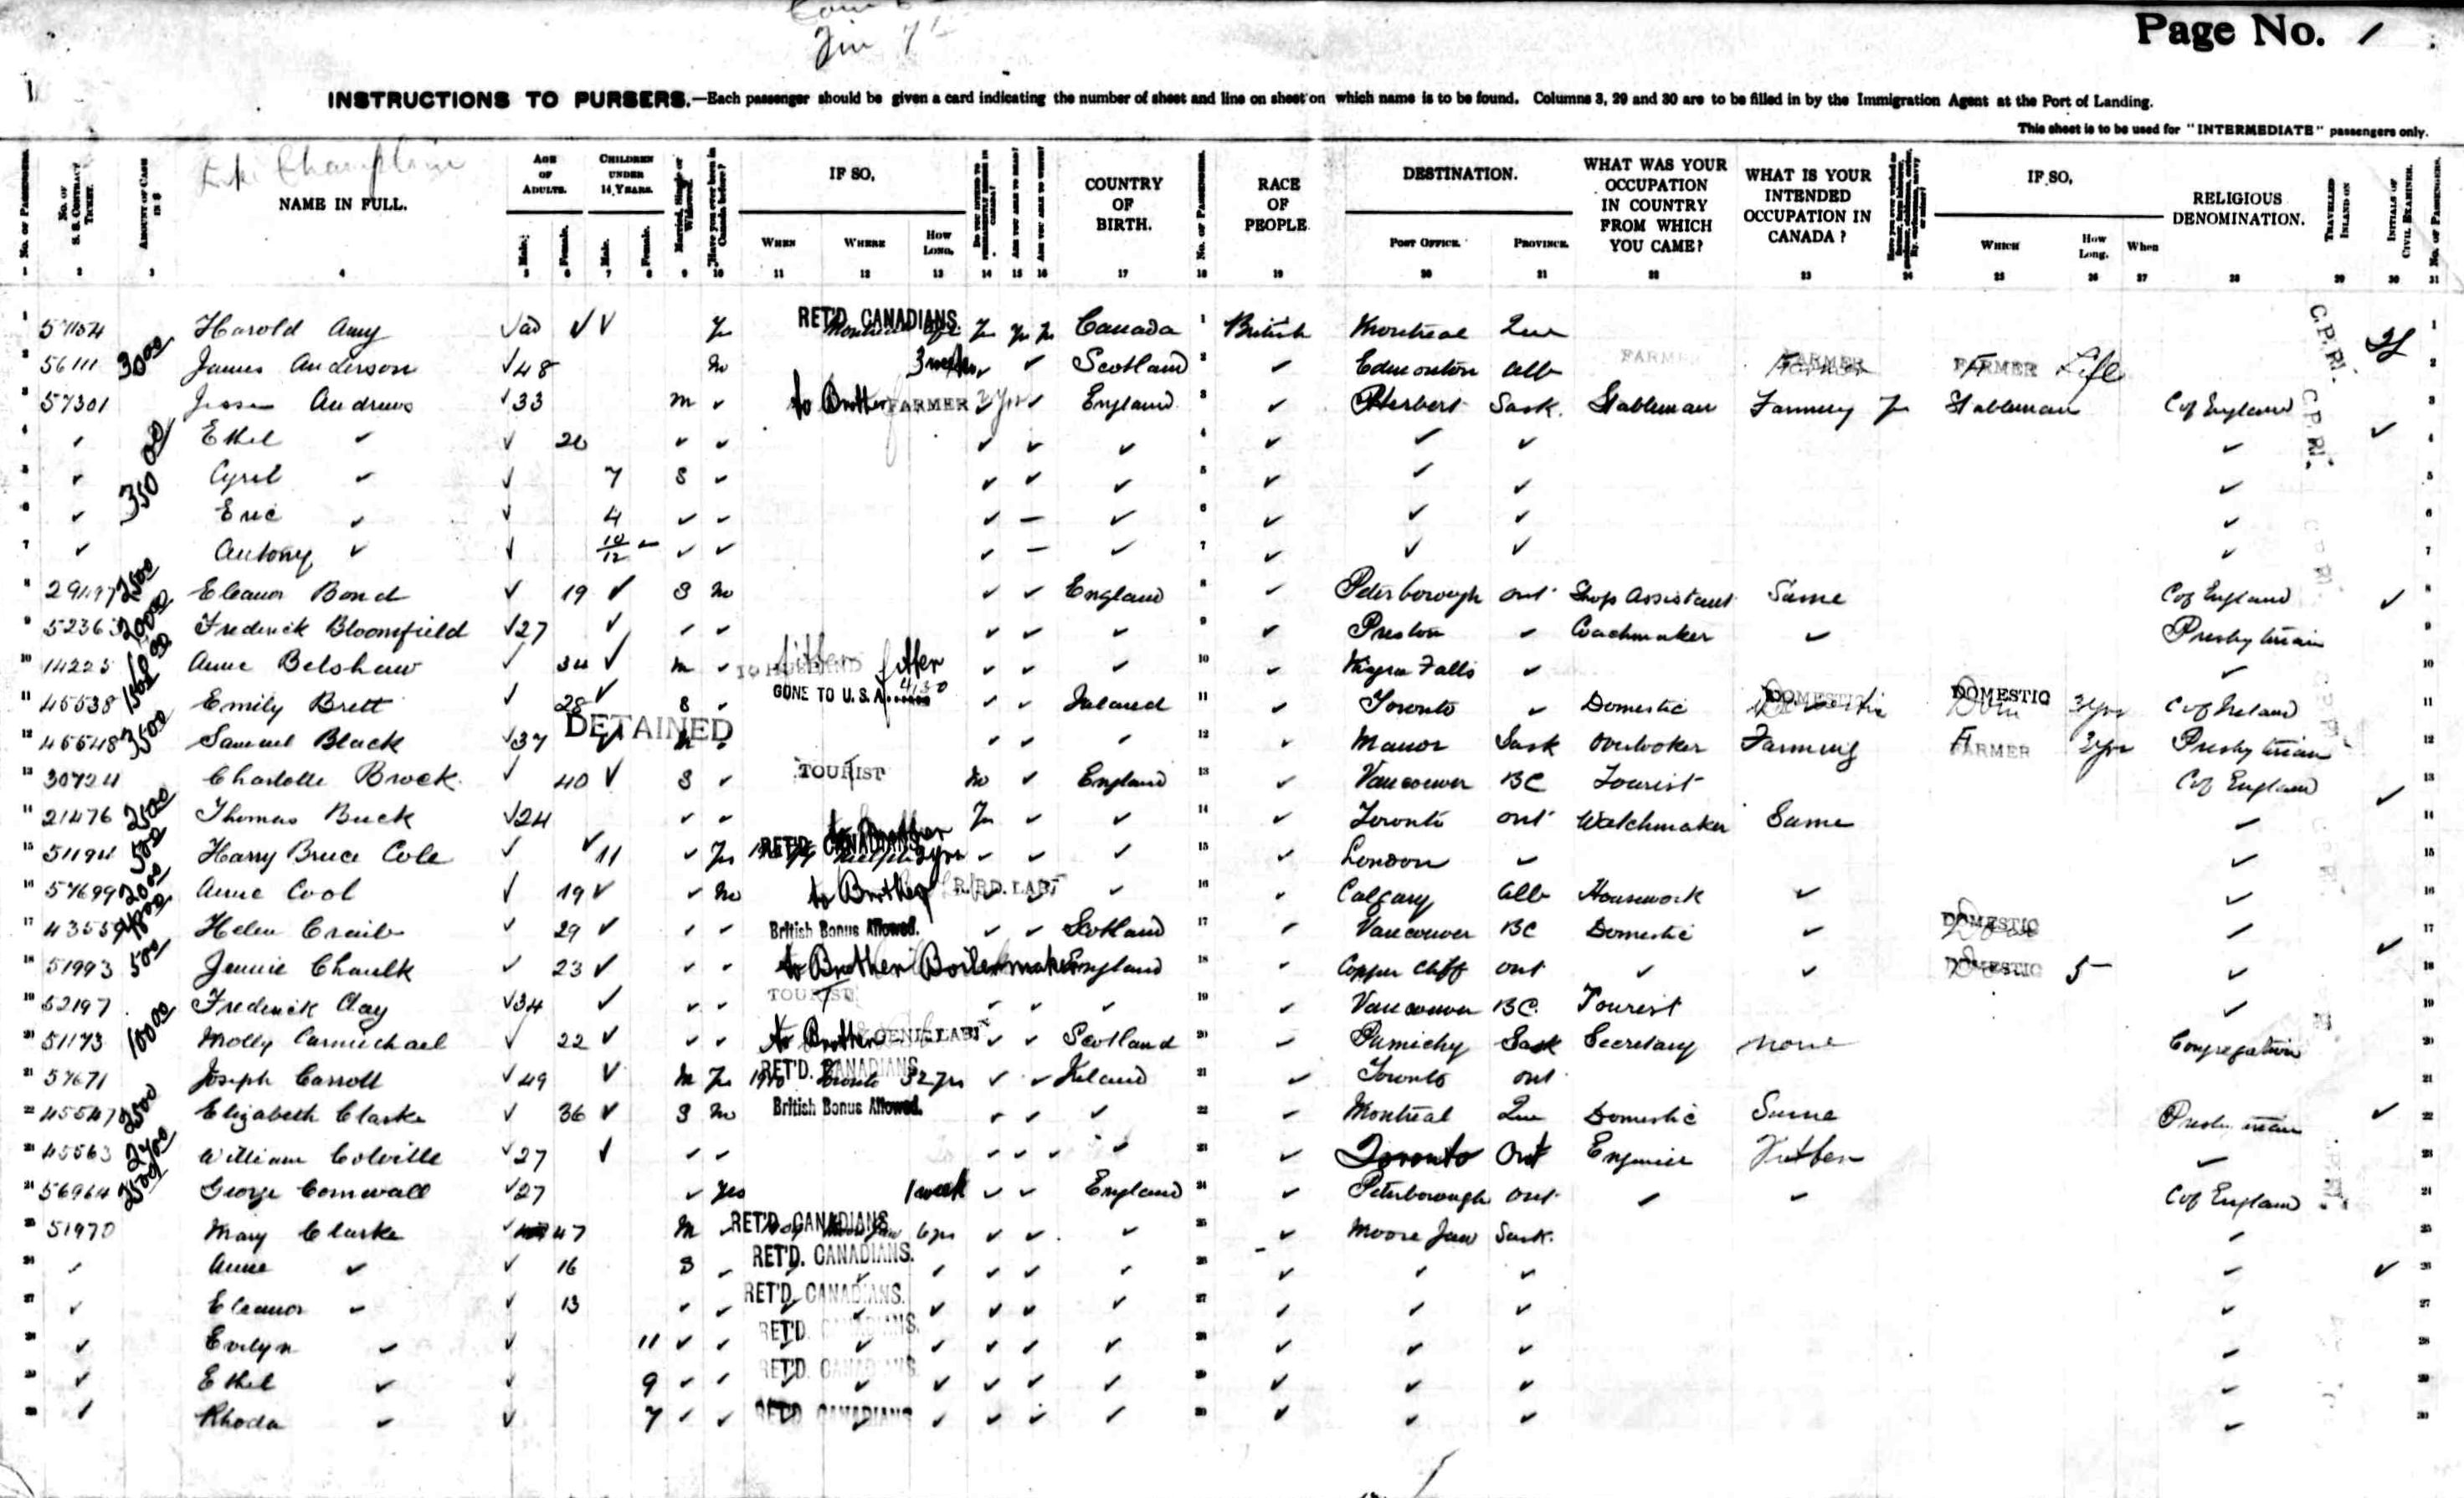 Page No. 1
INSTRUCTIONS TO PURSERS.—Each passenger should be given a card indicating the number of sheet and line on sheet on which name is to be found. Columns 3, 29 and 30 are to be filled in by the Immigration Agent at the Port of Landing.
This sheet is to be used for "INTERMEDIATE" passengers only.
No. of Passengers. No. of S. S. Contract Ticket. Amount of Cash in $ NAME IN FULL. Age of Adults. Children under 14 Years. Married, Single or Widowed. Have you ever been in Canada before? IF SO, Do you intend to permanently reside in Canada? Are you able to read? Are you able to write? COUNTRY OF BIRTH. No. of Passengers. RACE OF PEOPLE. DESTINATION. WHAT WAS YOUR OCCUPATION IN COUNTRY FROM WHICH YOU CAME? WHAT IS YOUR INTENDED OCCUPATION IN CANADA? IF SO, RELIGIOUS DENOMINATION. TRAVELLED INLAND ON INITIALS OF CIVIL EXAMINER. No. of Passengers.
Male. Female. Male. Female. When Where How Long. Post Office. Province. Which How Long. When
1 2 3 4 5 6 7 8 9 10 11 12 13 14 15 16 17 18 19 20 21 22 23 24 25 26 27 28 29 30 31
1 Harold Amy ✓ad ✓ ✓ RET'D CANADIANS Canada 1 British Montreal Que C.P.R. 1
2 56111 3000 James Anderson ✓48 No 3 weeks ✓ ✓ Scotland 2 ✓ Edmonton Alb FARMER FARMER FARMER Life 2
3 57301 Andrews ✓33 M ✓ to Brother FARMER England 3 ✓ Herbert Sask. Stableman Farming Stableman C of England C.P.R. 3
4 ✓ 350 00 Ethel ✓ ✓ 26 ✓ ✓ ✓ ✓ ✓ 4 ✓ ✓ ✓ ✓ ✓ 4
5 ✓ Cyril ✓ ✓ 7 S ✓ ✓ ✓ ✓ 5 ✓ ✓ ✓ ✓ 5
6 ✓ Eric ✓ ✓ 4 ✓ ✓ ✓ — ✓ 6 ✓ ✓ ✓ ✓ 6
7 ✓ Antony ✓ ✓ 10/12 ✓ ✓ ✓ — ✓ 7 ✓ ✓ ✓ ✓ 7
8 29197 2500 Eleanor Bond ✓ 19 ✓ S No ✓ ✓ England 8 ✓ Peterborough Ont Shop Assistant Same C of England ✓ 8
9 5236 20000 Frederick Bloomfield ✓27 ✓ ✓ ✓ ✓ ✓ ✓ 9 ✓ Preston ✓ Coachmaker ✓ Presbyterian 9
10 14225 Anne Belshaw ✓ 34 ✓ M ✓ fitter ✓ ✓ ✓ 10 ✓ Niagra Falls ✓ ✓ 10
11 45538 Emily Brett ✓ 28 ✓ S ✓ GONE TO U.S.A. ✓ ✓ Ireland 11 ✓ Toronto ✓ Domestic DOMESTIC DOMESTIC 3yrs C of Ireland 11
12 45548 3500 Samuel Black ✓37 DETAINED ✓ ✓ ✓ 12 ✓ Manor Sask Overlooker Farming FARMER 3yrs Presbyterian 12
13 30724 Charlotte Brock ✓ 40 ✓ S ✓ TOURIST No ✓ England 13 ✓ Vancouver BC Tourist C of England 13
14 21476 2500 Thomas Buck ✓24 ✓ ✓ to Brother ✓ ✓ 14 ✓ Toronto Ont Watchmaker Same ✓ 14
15 51194 500 Harry Bruce Cole ✓ ✓11 ✓ RET'D CANADIANS ✓ ✓ ✓ 15 ✓ London ✓ ✓ 15
16 57699 2000 Anne Cool ✓ 19 ✓ ✓ No to Brother R.RD. LAB. ✓ 16 ✓ Calgary Alb Housework ✓ ✓ 16
17 43559 Helen Craib ✓ 29 ✓ ✓ ✓ British Bonus Allowed. ✓ ✓ Scotland 17 ✓ Vancouver BC Domestic ✓ DOMESTIC ✓ 17
18 51993 500 Jennie Chaulk ✓ 23 ✓ ✓ ✓ to Brother Boilermaker England 18 ✓ Copper Cliff Ont ✓ ✓ DOMESTIC 5 ✓ 18
19 52197 Frederick Clay ✓34 ✓ ✓ ✓ TOURIST ✓ ✓ ✓ 19 ✓ Vancouver BC. Tourist ✓ 19
20 51173 10000 Molly Carmichael ✓ 22 ✓ ✓ ✓ to Brother GEN'L LAB. ✓ ✓ Scotland 20 ✓ Sask Secretary None Congregation 20
21 57671 Joseph Carroll ✓49 ✓ M RET'D. CANADIANS ✓ ✓ Ireland 21 ✓ Toronto Ont 21
22 45547 2500 Elizabeth Clarke ✓ 36 ✓ S No British Bonus Allowed. ✓ ✓ ✓ 22 ✓ Montreal Que Domestic Same Presbyterian ✓ 22
23 45563 William Colville ✓27 ✓ ✓ ✓ ✓ ✓ ✓ ✓ 23 ✓ Toronto Ont Engineer ✓ 23
24 56964 2500 George Cornwall ✓27 ✓ Yes 1 week ✓ ✓ England 24 ✓ Peterborough Ont ✓ ✓ C of England 24
25 51970 Mary Clarke ✓ 47 M ✓ RET'D. CANADIANS 6yrs ✓ ✓ ✓ 25 ✓ Moose Jaw Sask. ✓ 25
26 ✓ Anne ✓ ✓ 16 S ✓ RET'D. CANADIANS. ✓ ✓ ✓ ✓ 26 ✓ ✓ ✓ ✓ ✓ 26
27 ✓ Eleanor ✓ ✓ 13 ✓ ✓ RET'D. CANADIANS. ✓ ✓ ✓ ✓ 27 ✓ ✓ ✓ ✓ 27
28 ✓ Evelyn ✓ ✓ 11 ✓ ✓ RET'D. CANADIANS. ✓ ✓ ✓ ✓ 28 ✓ ✓ ✓ ✓ 28
29 ✓ Ethel ✓ ✓ 9 ✓ ✓ RET'D. CANADIANS ✓ ✓ ✓ ✓ 29 ✓ ✓ ✓ ✓ 29
30 ✓ Rhoda ✓ ✓ 7 ✓ ✓ RET'D CANADIANS ✓ ✓ ✓ ✓ 30 ✓ ✓ ✓ ✓ 30